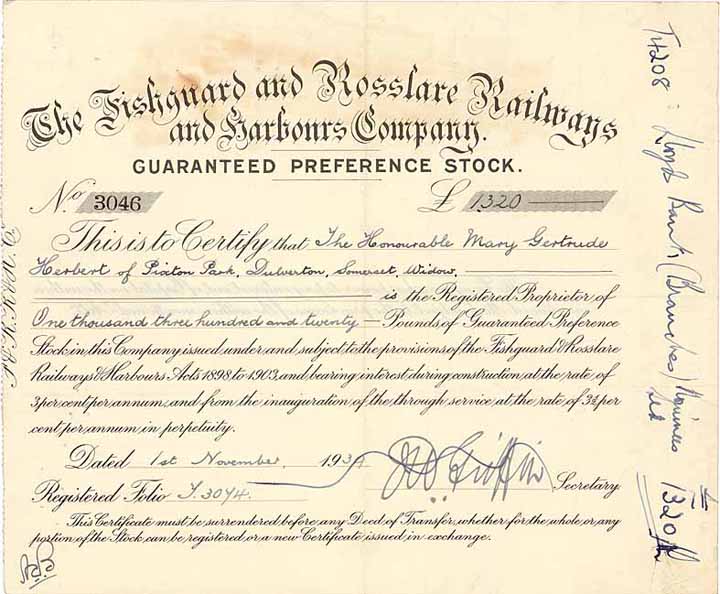 The Fishguard and Rosslare Railways
and Harbours Company.
GUARANTEED PREFERENCE STOCK.
No. 3046 £ 1320
This is to Certify that The Honourable Mary Gertrude
Herbert of Pixton Park, Dulverton, Somerset, Widow,
is the Registered Proprietor of
One thousand three hundred and twenty Pounds of Guaranteed Preference
Stock in this Company issued under and subject to the provisions of the Fishguard & Rosslare
Railways & Harbours Acts 1898 to 1903, and bearing interest during construction at the rate of
3 per cent per annum, and from the inauguration of the through service at the rate of 3½ per
cent per annum in perpetuity.
Dated 1st November, 1934
Griffin Secretary
Registered Folio T.3074.
This Certificate must be surrendered before any Deed of Transfer, whether for the whole or any
portion of the Stock can be registered or a new Certificate issued in exchange.
T4208 : Lloyds Bank (Branches) Nominees
Ltd
£1320